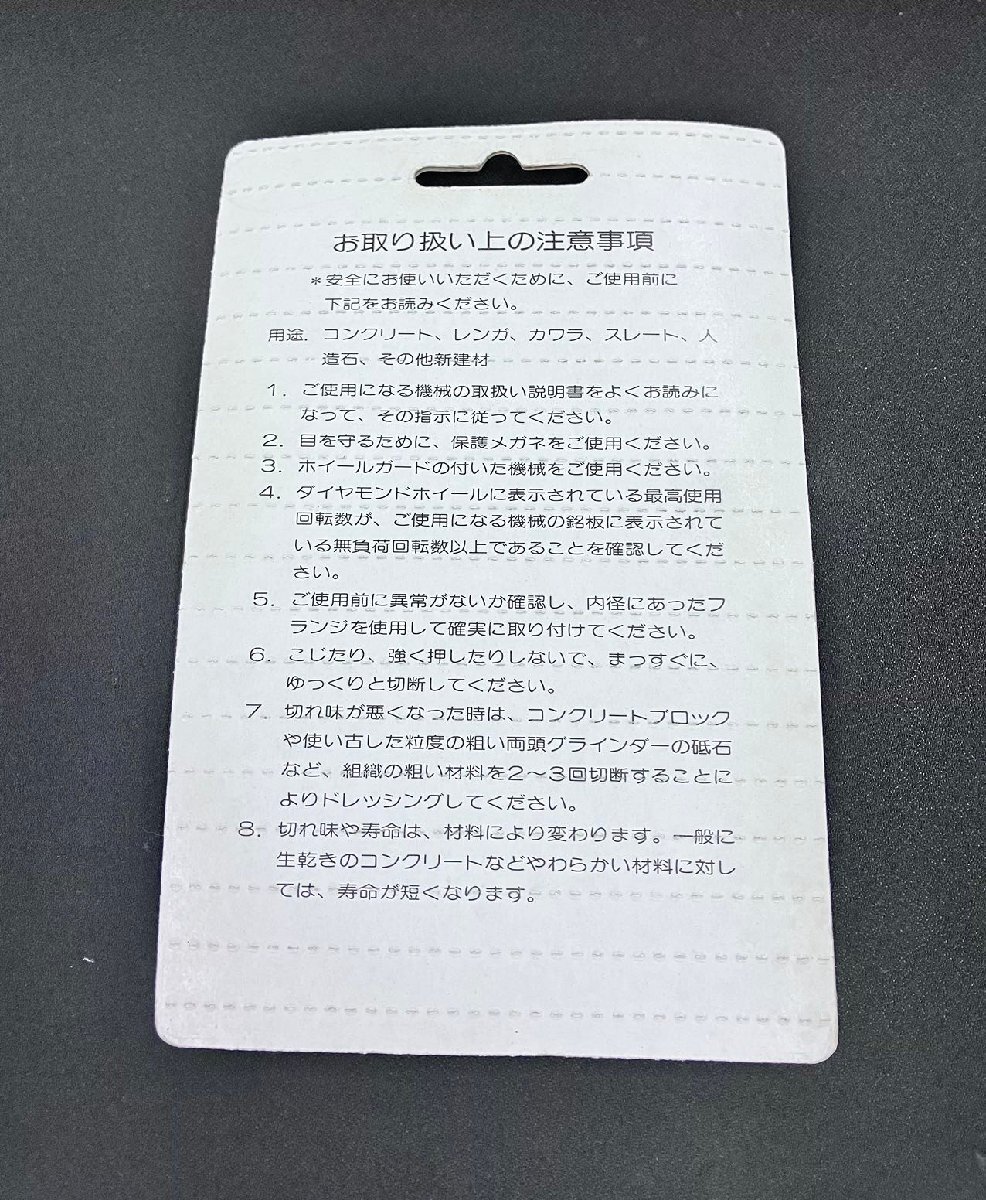 お取り扱い上の注意事項
＊安全にお使いいただくために、ご使用前に
下記をお読みください。
用途．コンクリート、レンガ、カワラ、スレート、人
造石、その他新建材
1．ご使用になる機械の取扱い説明書をよくお読みに
なって、その指示に従ってください。
2．目を守るために、保護メガネをご使用ください。
3．ホイールガードの付いた機械をご使用ください。
4．ダイヤモンドホイールに表示されている最高使用
回転数が、ご使用になる機械の銘板に表示されて
いる無負荷回転数以上であることを確認してくだ
さい。
5．ご使用前に異常がないか確認し、内径にあったフ
ランジを使用して確実に取り付けてください。
6．こじたり、強く押したりしないで、まっすぐに、
ゆっくりと切断してください。
7．切れ味が悪くなった時は、コンクリートブロック
や使い古した粒度の粗い両頭グラインダーの砥石
など、組織の粗い材料を2〜3回切断することに
よりドレッシングしてください。
8．切れ味や寿命は、材料により変わります。一般に
生乾きのコンクリートなどやわらかい材料に対し
ては、寿命が短くなります。